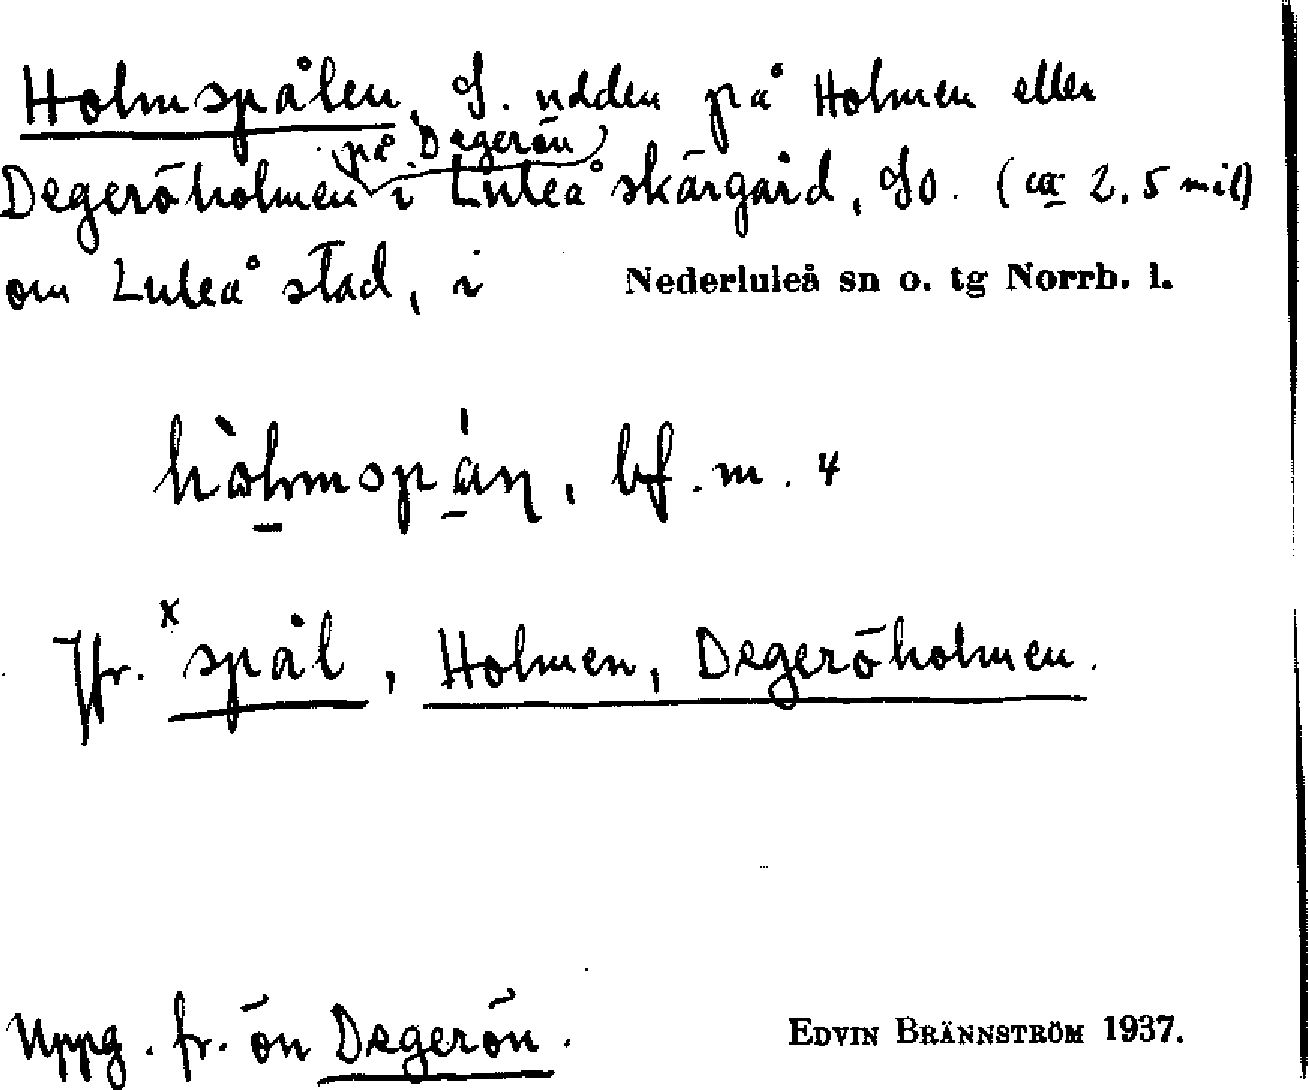 Holmspålen, S. udden på Holmen eller
på Degerön
Degeröholmen i Luleå skärgård, SO. (ca 2,5 mil)
om Luleå stad, i Nederluleå sn o. tg Norrb. l.
bf. m. 4
Jfr. ˣspål, Holmen, Degeröholmen.
Uppg. fr. ön Degerön.
EDVIN BRÄNNSTRÖM 1937.